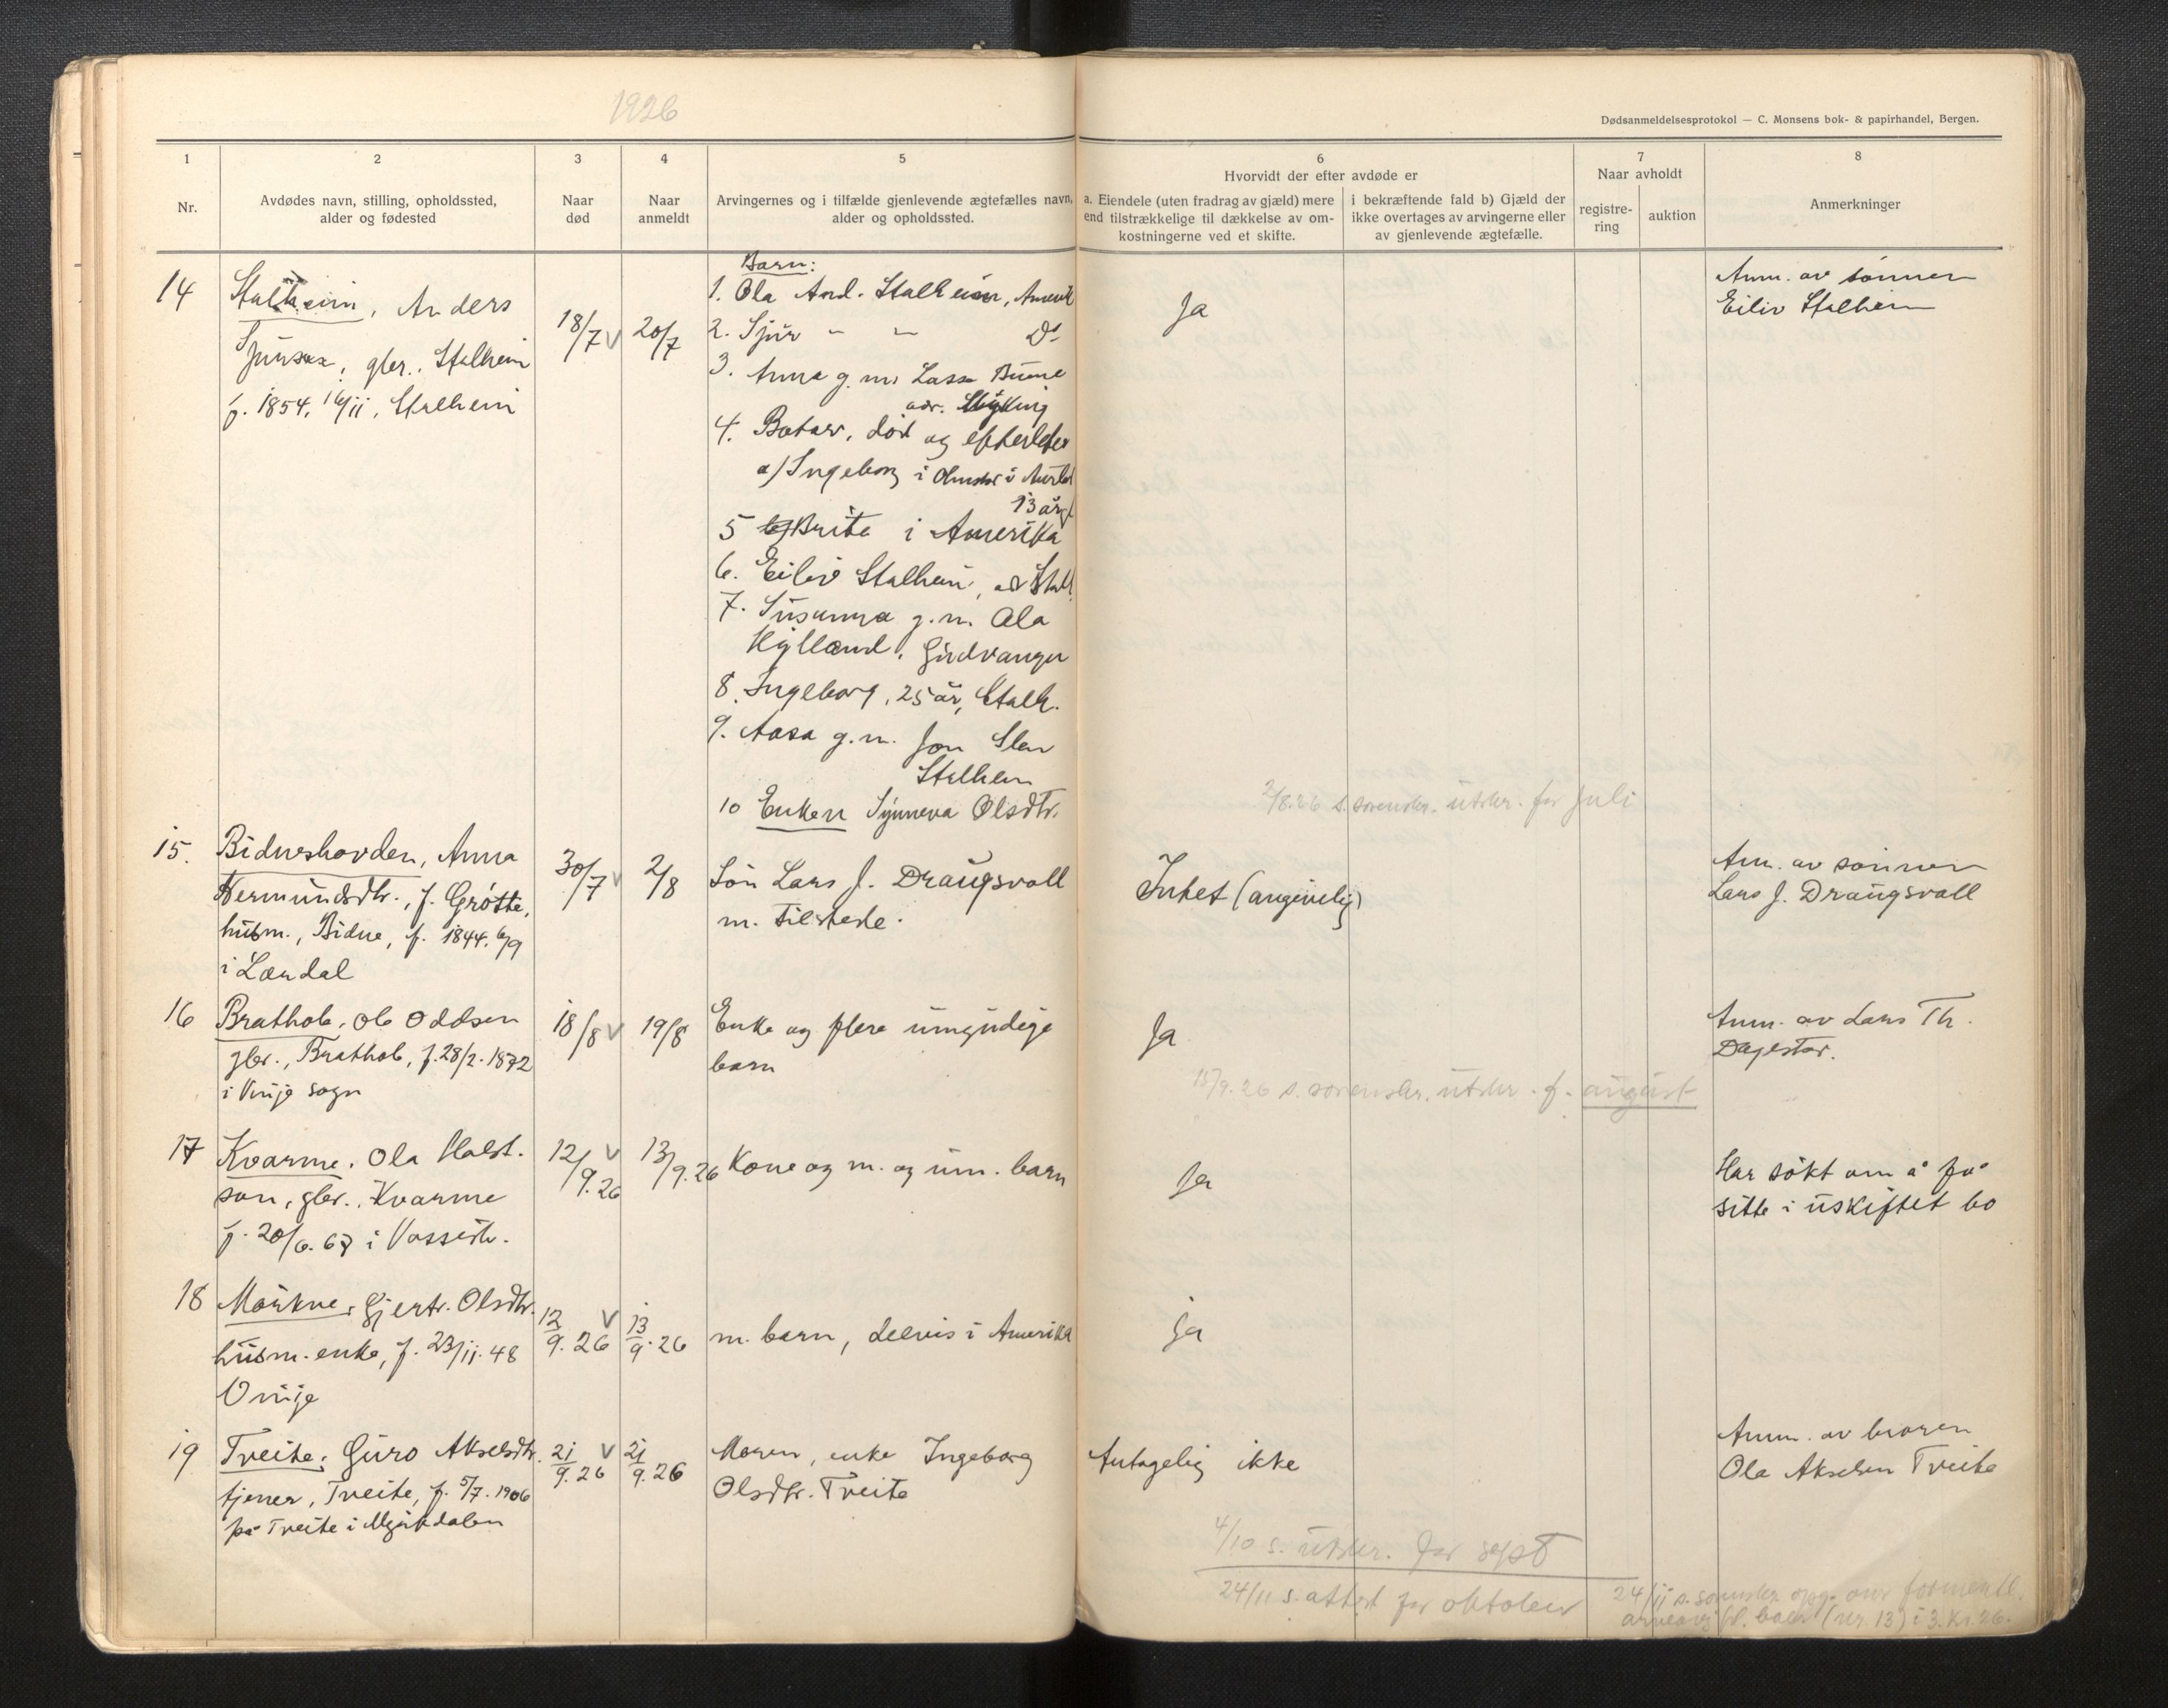 1926
Dødsanmeldelsesprotokol — C. Monsens bok- & papirhandel, Bergen.
1
2
3
4
5
6
7
8
Nr.
Avdødes navn, stilling, opholdssted,
alder og fødested
Naar
død
Naar
anmeldt
Arvingernes og i tilfælde gjenlevende ægtefælles navn,
alder og opholdssted.
Hvorvidt der efter avdøde er
a. Eiendele (uten fradrag av gjæld) mere
end tilstrækkelige til dækkelse av om-
kostningerne ved et skifte.
i bekræftende fald b) Gjæld der
ikke overtages av arvingerne eller
av gjenlevende ægtefælle.
Naar avholdt
registre-
ring
auktion
Anmerkninger
14
Stalheim, Anders
Sjursen, gbr., Stalheim
f. 1854, 16/11, Stalheim
18/7 v
20/7
Barn:
1. Ola And. Stalheim, Amerik
2. Sjur " " Do
3. Anna g. m. Lasse
adr.
4. Botolv, død og efterlater
a) Ingeborg i
13 år
5 Brita i Amerika
6. Eiliv Stalheim, Stalh
7. Susanna g. m. Ola
Hylland, Gudvangen
8. Ingeborg, 25 år, Stalh.
9. Aasa g. m. Jon
Stalheim
10 Enken Synneva Olsdtr.
Ja
Anm. av sønnen
Eiliv Stalheim
2/8.26 s. sorenskr. utskr. for juli
15.
Bidneshovden, Anna
Hermundsdtr., f. Grøtte,
husm., Bidne, f. 1844, 6/9
i Lærdal
30/7 v
2/8
Søn Lars J. Draugsvoll
m. tilstede.
Intet (angivelig)
Anm. av sønnen
Lars J. Draugsvoll
16
Brathole, Ole Oddsen
gbr., Brathole, f. 28/2. 1872
i Vinje sogn
18/8 v
19/8
Enke og flere umyndige
barn
Ja
Anm. av Lars Th.
Dagestad.
15/9.26 s. sorenskr. utskr. f. august
17
Kvarme, Ola Halst.
son, gbr., Kvarme
f. 20/6. 67 i Vossestr.
12/9.26 v
13/9.26
Kone og m. og um. barn
Ja
Har søkt om å få
sitte i uskiftet bo
18
Mørkve, Gjertr. Olsdtr.
husm. enke, f. 23/11. 48
Vinje
12/9.26 v
13/9.26
m. barn, delvis i Amerika
Ja
19
Tveite, Guro Akselsdtr.
tjener, Tveite, f. 5/7. 1906
på Tveite i Myrkdalen
21/9.26 v
21/9.26
Moren, enke Ingeborg
Olsdtr. Tveite
Antagelig ikke
Anm. av broren
Ola Akselsen Tveite
4/10 s. utskr. for sept
24/11 s. attest for oktober
24/11 s. sorenskr. opg. over formentl.
(nr. 13) i 3. kv. 26.